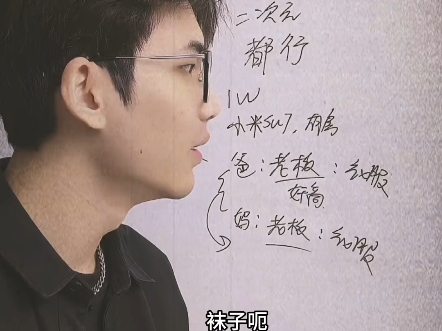 二次元
都行
1W
小米SU7,
爸:老板:纟服
好高
妈:老板:
袜子呃